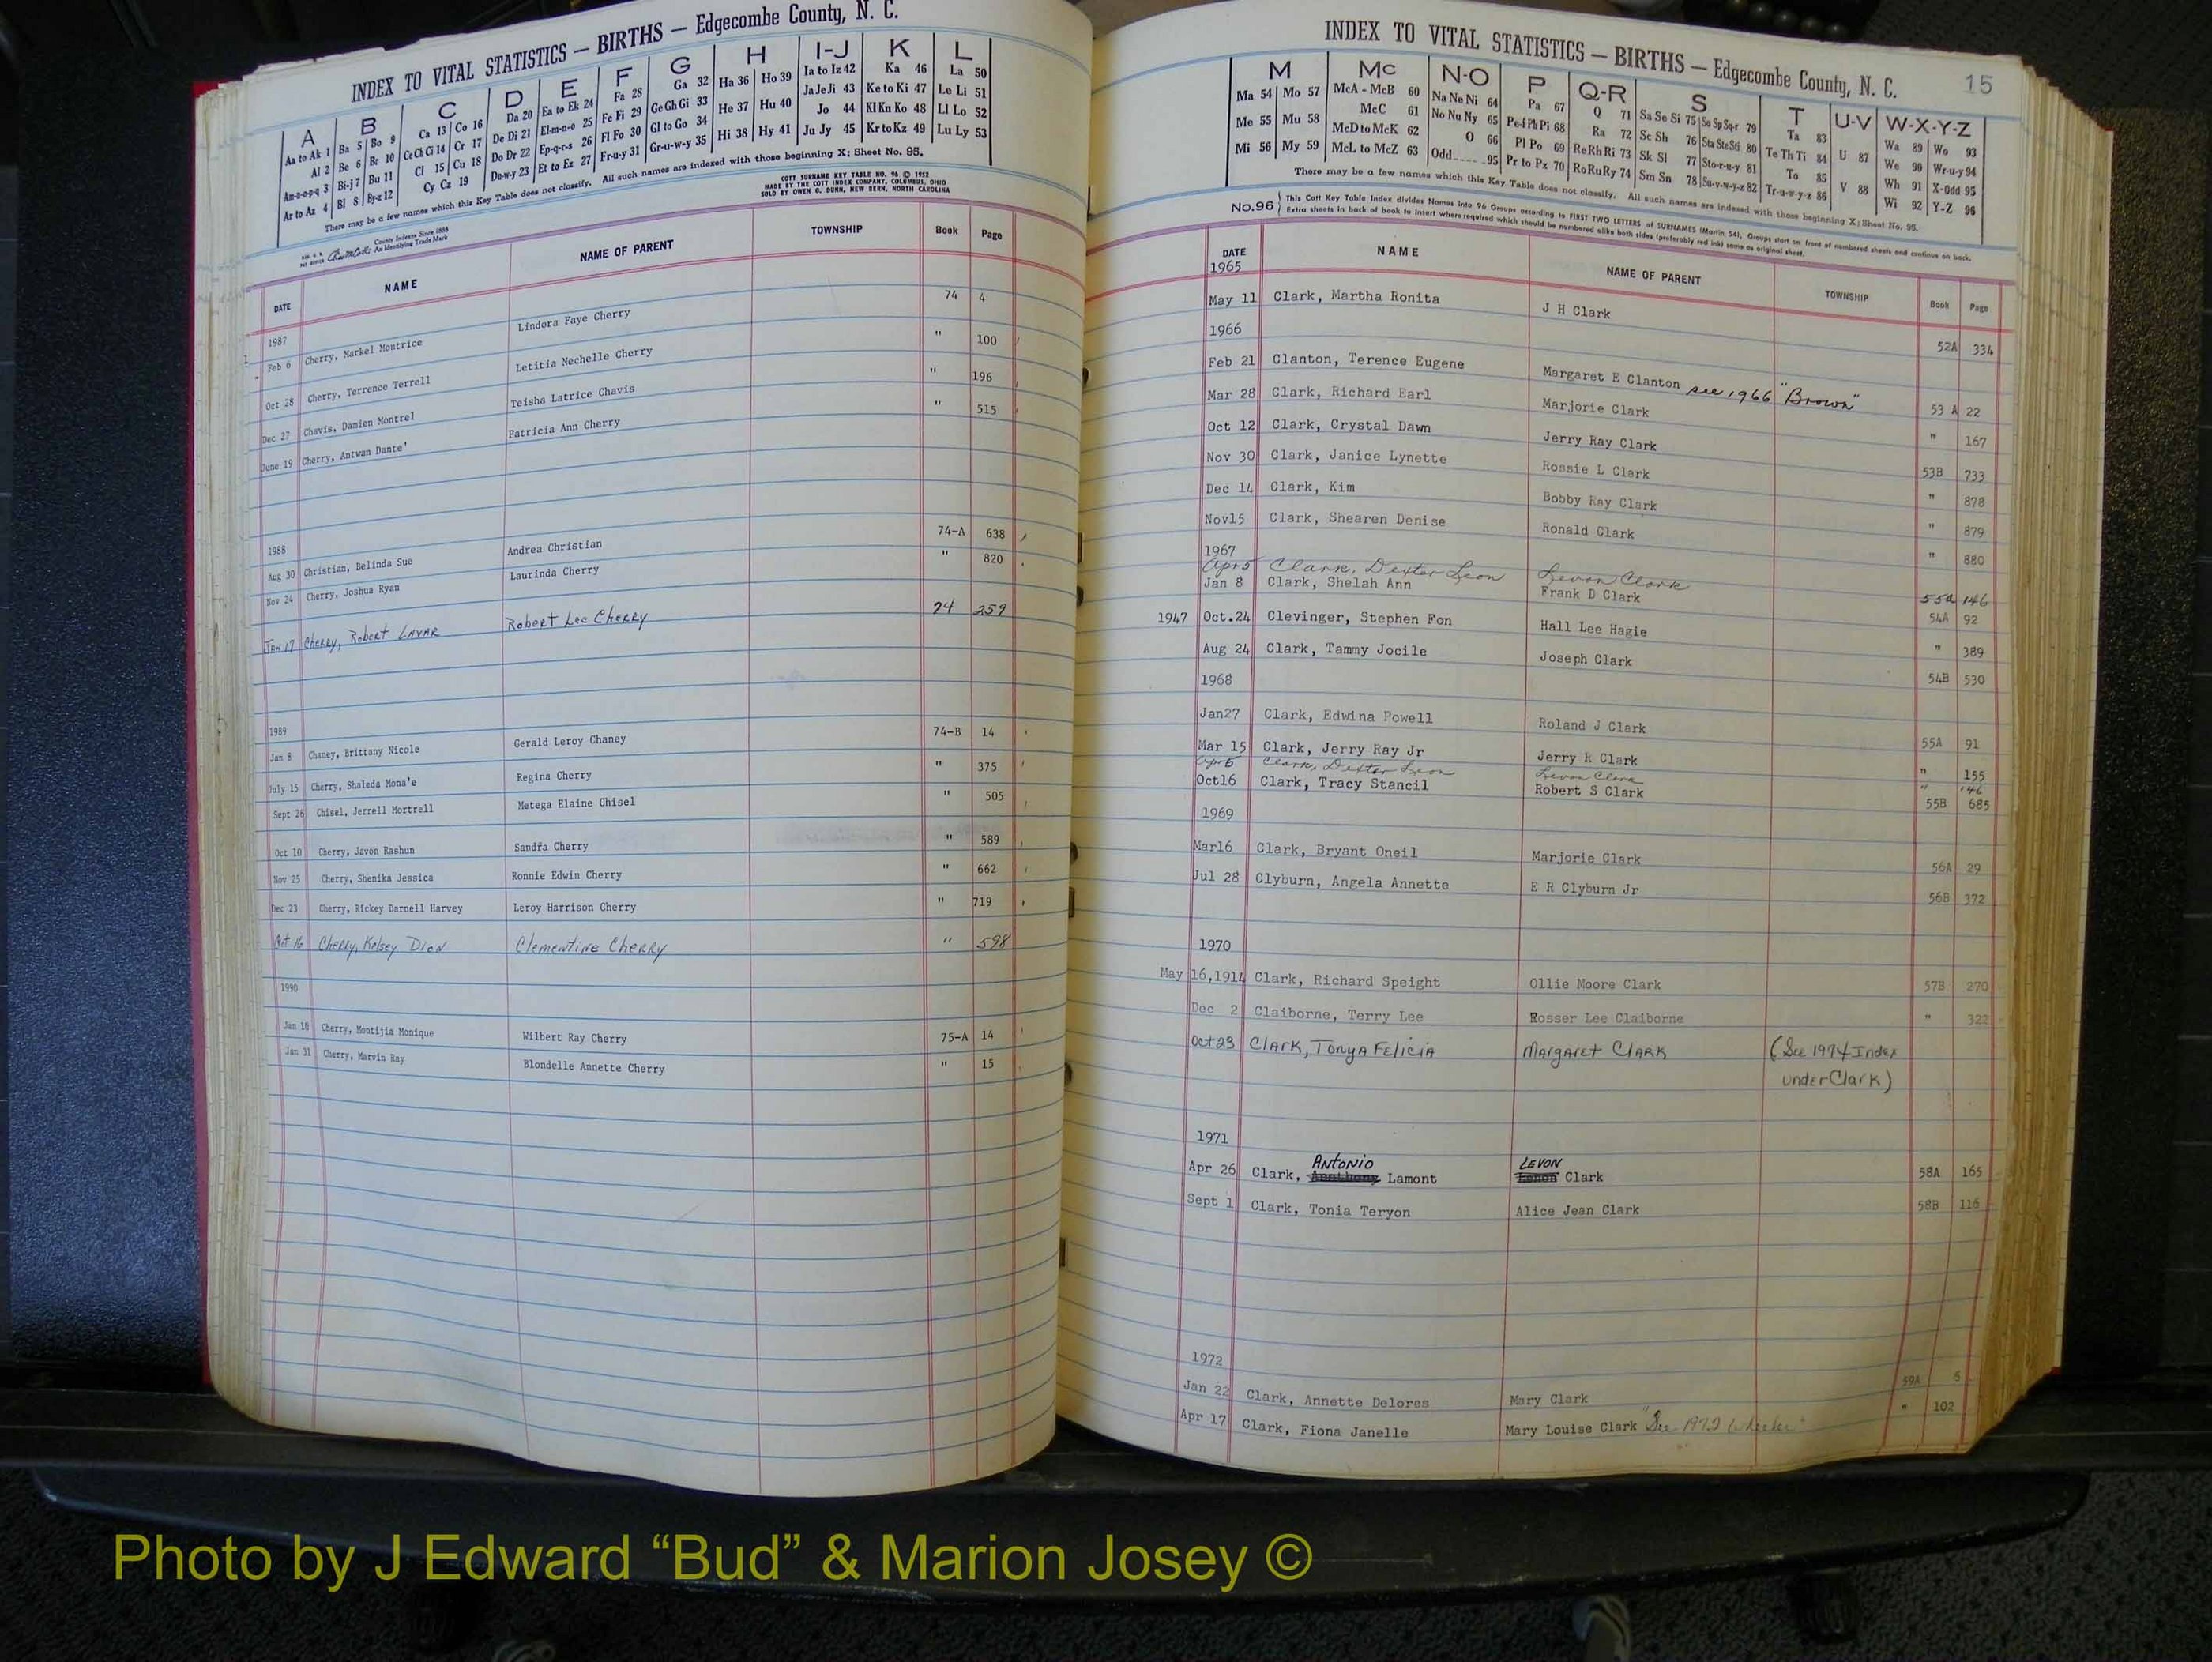 INDEX TO VITAL STATISTICS — BIRTHS — Edgecombe County, N. C.
A B C D E F G H I-J K L
Aa to Ak 1 Ba 5 Bo 9 Ca 13 Co 16 Da 20 Ea to Ek 24 Fa 28 Ga 32 Ha 36 Ho 39 Ia to Iz 42 Ka 46 La 50
Al 2 Be 6 Br 10 Ce Ch Ci 14 Cr 17 De Di 21 El-m-n-o 25 Fe Fi 29 Ge Gh Gi 33 He 37 Hu 40 Ja Je Ji 43 Ke to Ki 47 Le Li 51
Am-n-o-p-q 3 Bi-j 7 Bu 11 Cl 15 Cu 18 Do Dr 22 Ep-q-r-s 26 Fl Fo 30 Gl to Go 34 Hi 38 Hy 41 Jo 44 Kl Kn Ko 48 Ll Lo 52
Ar to Az 4 Bl 8 By-z 12 Cy Cz 19 Du-w-y 23 Et to Ez 27 Fr-u-y 31 Gr-u-w-y 35 Ju Jy 45 Kr to Kz 49 Lu Ly 53
There may be a few names which this Key Table does not classify. All such names are indexed with those beginning X; Sheet No. 95.
COTT SURNAME KEY TABLE NO. 96 © 1912
MADE BY THE COTT INDEX COMPANY, COLUMBUS, OHIO
SOLD BY OWEN G. DUNN, NEW BERN, NORTH CAROLINA
County Indexes Since 1888
An Identifying Trade Mark
DATE NAME NAME OF PARENT TOWNSHIP Book Page
1987
Feb 6 Cherry, Markel Montrice Lindora Faye Cherry 74 4
Oct 28 Cherry, Terrence Terrell Letitia Nechelle Cherry " 100
Dec 27 Chavis, Damien Montrel Teisha Latrice Chavis " 196
June 19 Cherry, Antwan Dante' Patricia Ann Cherry " 515
1988
Aug 30 Christian, Belinda Sue Andrea Christian 74-A 638
Nov 24 Cherry, Joshua Ryan Laurinda Cherry " 820
Jan 17 Cherry, Robert Lavar Robert Lee Cherry 74 259
1989
Jan 8 Chaney, Brittany Nicole Gerald Leroy Chaney 74-B 14
July 15 Cherry, Shaleda Mona'e Regina Cherry " 375
Sept 26 Chisel, Jerrell Mortrell Metega Elaine Chisel " 505
Oct 10 Cherry, Javon Rashun Sandra Cherry " 589
Nov 25 Cherry, Shenika Jessica Ronnie Edwin Cherry " 662
Dec 23 Cherry, Rickey Darnell Harvey Leroy Harrison Cherry " 719
Oct 16 Cherry, Kelsey Dion Clementine Cherry " 598
1990
Jan 10 Cherry, Montijia Monique Wilbert Ray Cherry 75-A 14
Jan 31 Cherry, Marvin Ray Blondelle Annette Cherry " 15
INDEX TO VITAL STATISTICS — BIRTHS — Edgecombe County, N. C. 15
M Mc N-O P Q-R S T U-V W-X-Y-Z
Ma 54 Mo 57 McA - McB 60 Na Ne Ni 64 Pa 67 Q 71 Sa Se Si 75 So Sp Sq-r 79 Ta 83 Wa 89 Wo 93
Me 55 Mu 58 McC 61 No Nu Ny 65 Pe-f Ph Pi 68 Ra 72 Sc Sh 76 Sta Ste Sti 80 Te Th Ti 84 U 87 We 90 Wr-u-y 94
Mi 56 My 59 McD to McK 62 O 66 Pl Po 69 Re Rh Ri 73 Sk Sl 77 Sto-r-u-y 81 To 85 V 88 Wh 91 X-Odd 95
McL to McZ 63 Odd 95 Pr to Pz 70 Ro Ru Ry 74 Sm Sn 78 Su-v-w-y-z 82 Tr-u-w-y-z 86 Wi 92 Y-Z 96
There may be a few names which this Key Table does not classify. All such names are indexed with those beginning X; Sheet No. 95.
No. 96 This Cott Key Table Index divides Names into 96 Groups according to FIRST TWO LETTERS of SURNAMES (Martin 54). Groups start on front of numbered sheets and continue on back.
Extra sheets in back of book to insert where required which should be numbered alike both sides (preferably red ink) same as original sheet.
DATE NAME NAME OF PARENT TOWNSHIP Book Page
1965
May 11 Clark, Martha Ronita J H Clark 52A 334
1966
Feb 21 Clanton, Terence Eugene Margaret E Clanton see 1966 "Brown" 53 A 22
Mar 28 Clark, Richard Earl Marjorie Clark " 167
Oct 12 Clark, Crystal Dawn Jerry Ray Clark 53B 733
Nov 30 Clark, Janice Lynette Rossie L Clark " 878
Dec 14 Clark, Kim Bobby Ray Clark " 879
Nov15 Clark, Shearen Denise Ronald Clark " 880
1967
Apr 5 Clark, Dexter Leon Levon Clark 55a 146
Jan 8 Clark, Shelah Ann Frank D Clark 54A 92
1947 Oct.24 Clevinger, Stephen Fon Hall Lee Hagie " 389
Aug 24 Clark, Tammy Jocile Joseph Clark 54B 530
1968
Jan27 Clark, Edwina Powell Roland J Clark 55A 91
Mar 15 Clark, Jerry Ray Jr Jerry R Clark " 155
Apr 5 Clark, Dexter Leon Levon Clark " 146
Oct16 Clark, Tracy Stancil Robert S Clark 55B 685
1969
Mar16 Clark, Bryant Oneil Marjorie Clark 56A 29
Jul 28 Clyburn, Angela Annette E R Clyburn Jr 56B 372
1970
May 16,1914 Clark, Richard Speight Ollie Moore Clark 57B 270
Dec 2 Claiborne, Terry Lee Rosser Lee Claiborne " 322
Oct 23 Clark, Tonya Felicia Margaret Clark (See 1974 Index
under Clark)
1971
Antonio Levon
Apr 26 Clark, Lamont Clark 58A 165
Sept 1 Clark, Tonia Teryon Alice Jean Clark 58B 116
1972
Jan 22 Clark, Annette Delores Mary Clark 59A 6
Apr 17 Clark, Fiona Janelle Mary Louise Clark "See 1972 Wheeler" " 102
Photo by J Edward “Bud” & Marion Josey ©